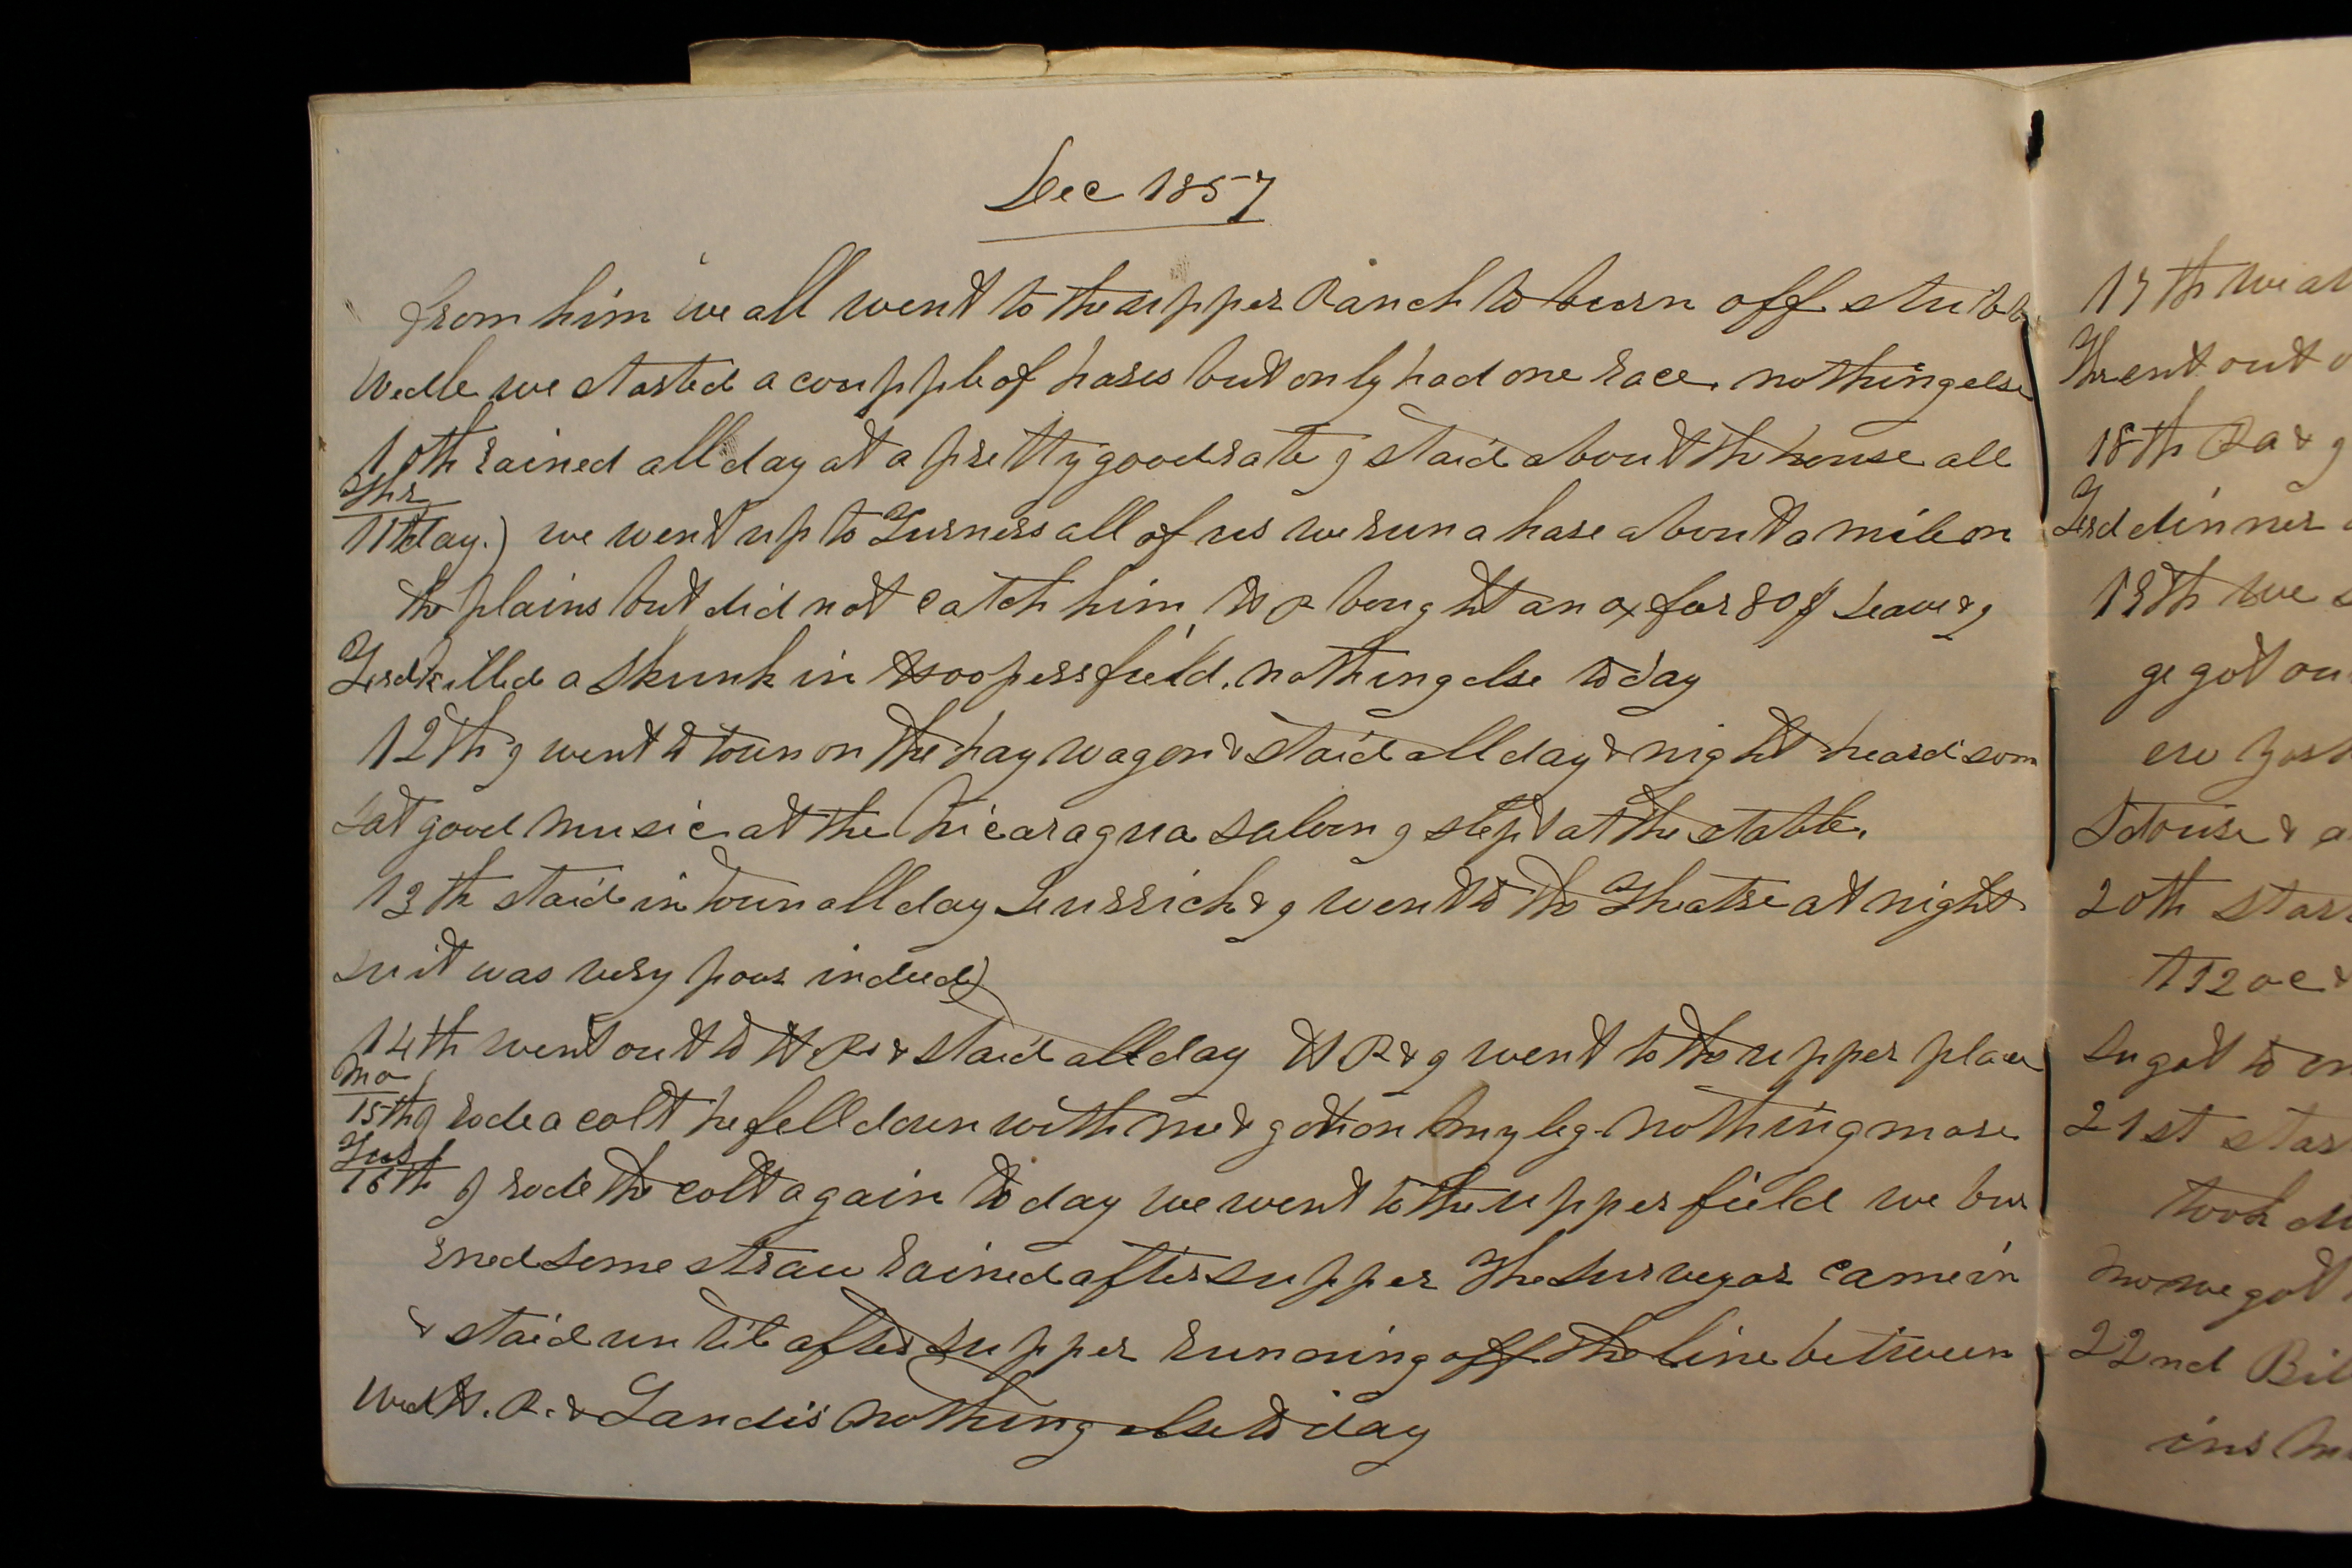 Dec 1857
from him we all went to the upper Ranch to burn off stubb
Wed le we started a coupple of hares but only had one race. nothing else
10th rained all day at a pretty good rate I staid about the house all
Thr
11th day.) we went up to Turners all of us we run a hare about a mile on
the plains but did not catch him H R bought an ox for 80 $ & I
Frd killed a skunk in Hoopers field. nothing else today
12th I went to town on the hay wagon & staid all day & night heard som
Sat good music at the Nicaragua saloon I slept at the stable.
13th staid in town all day & I went to the Theatre at night
Su it was very poor indeed)
14th went out to H Rs & staid all day H R & I went to the upper place
Mo
15th I rode a colt he fell down with me & got on my leg. nothing more
Tus
16th I rode the colt again today we went to the upper field we bur
rned some straw rained after supper The surveyor came in
& staid until after supper running off the line between
Wed H. R. & Landis nothing else today
17th we
Thr went out
18th Ra & I
Frd dinner
19th we
ge got ou
20th star
Su got to
21st star
took
Mo we got
22nd Bil